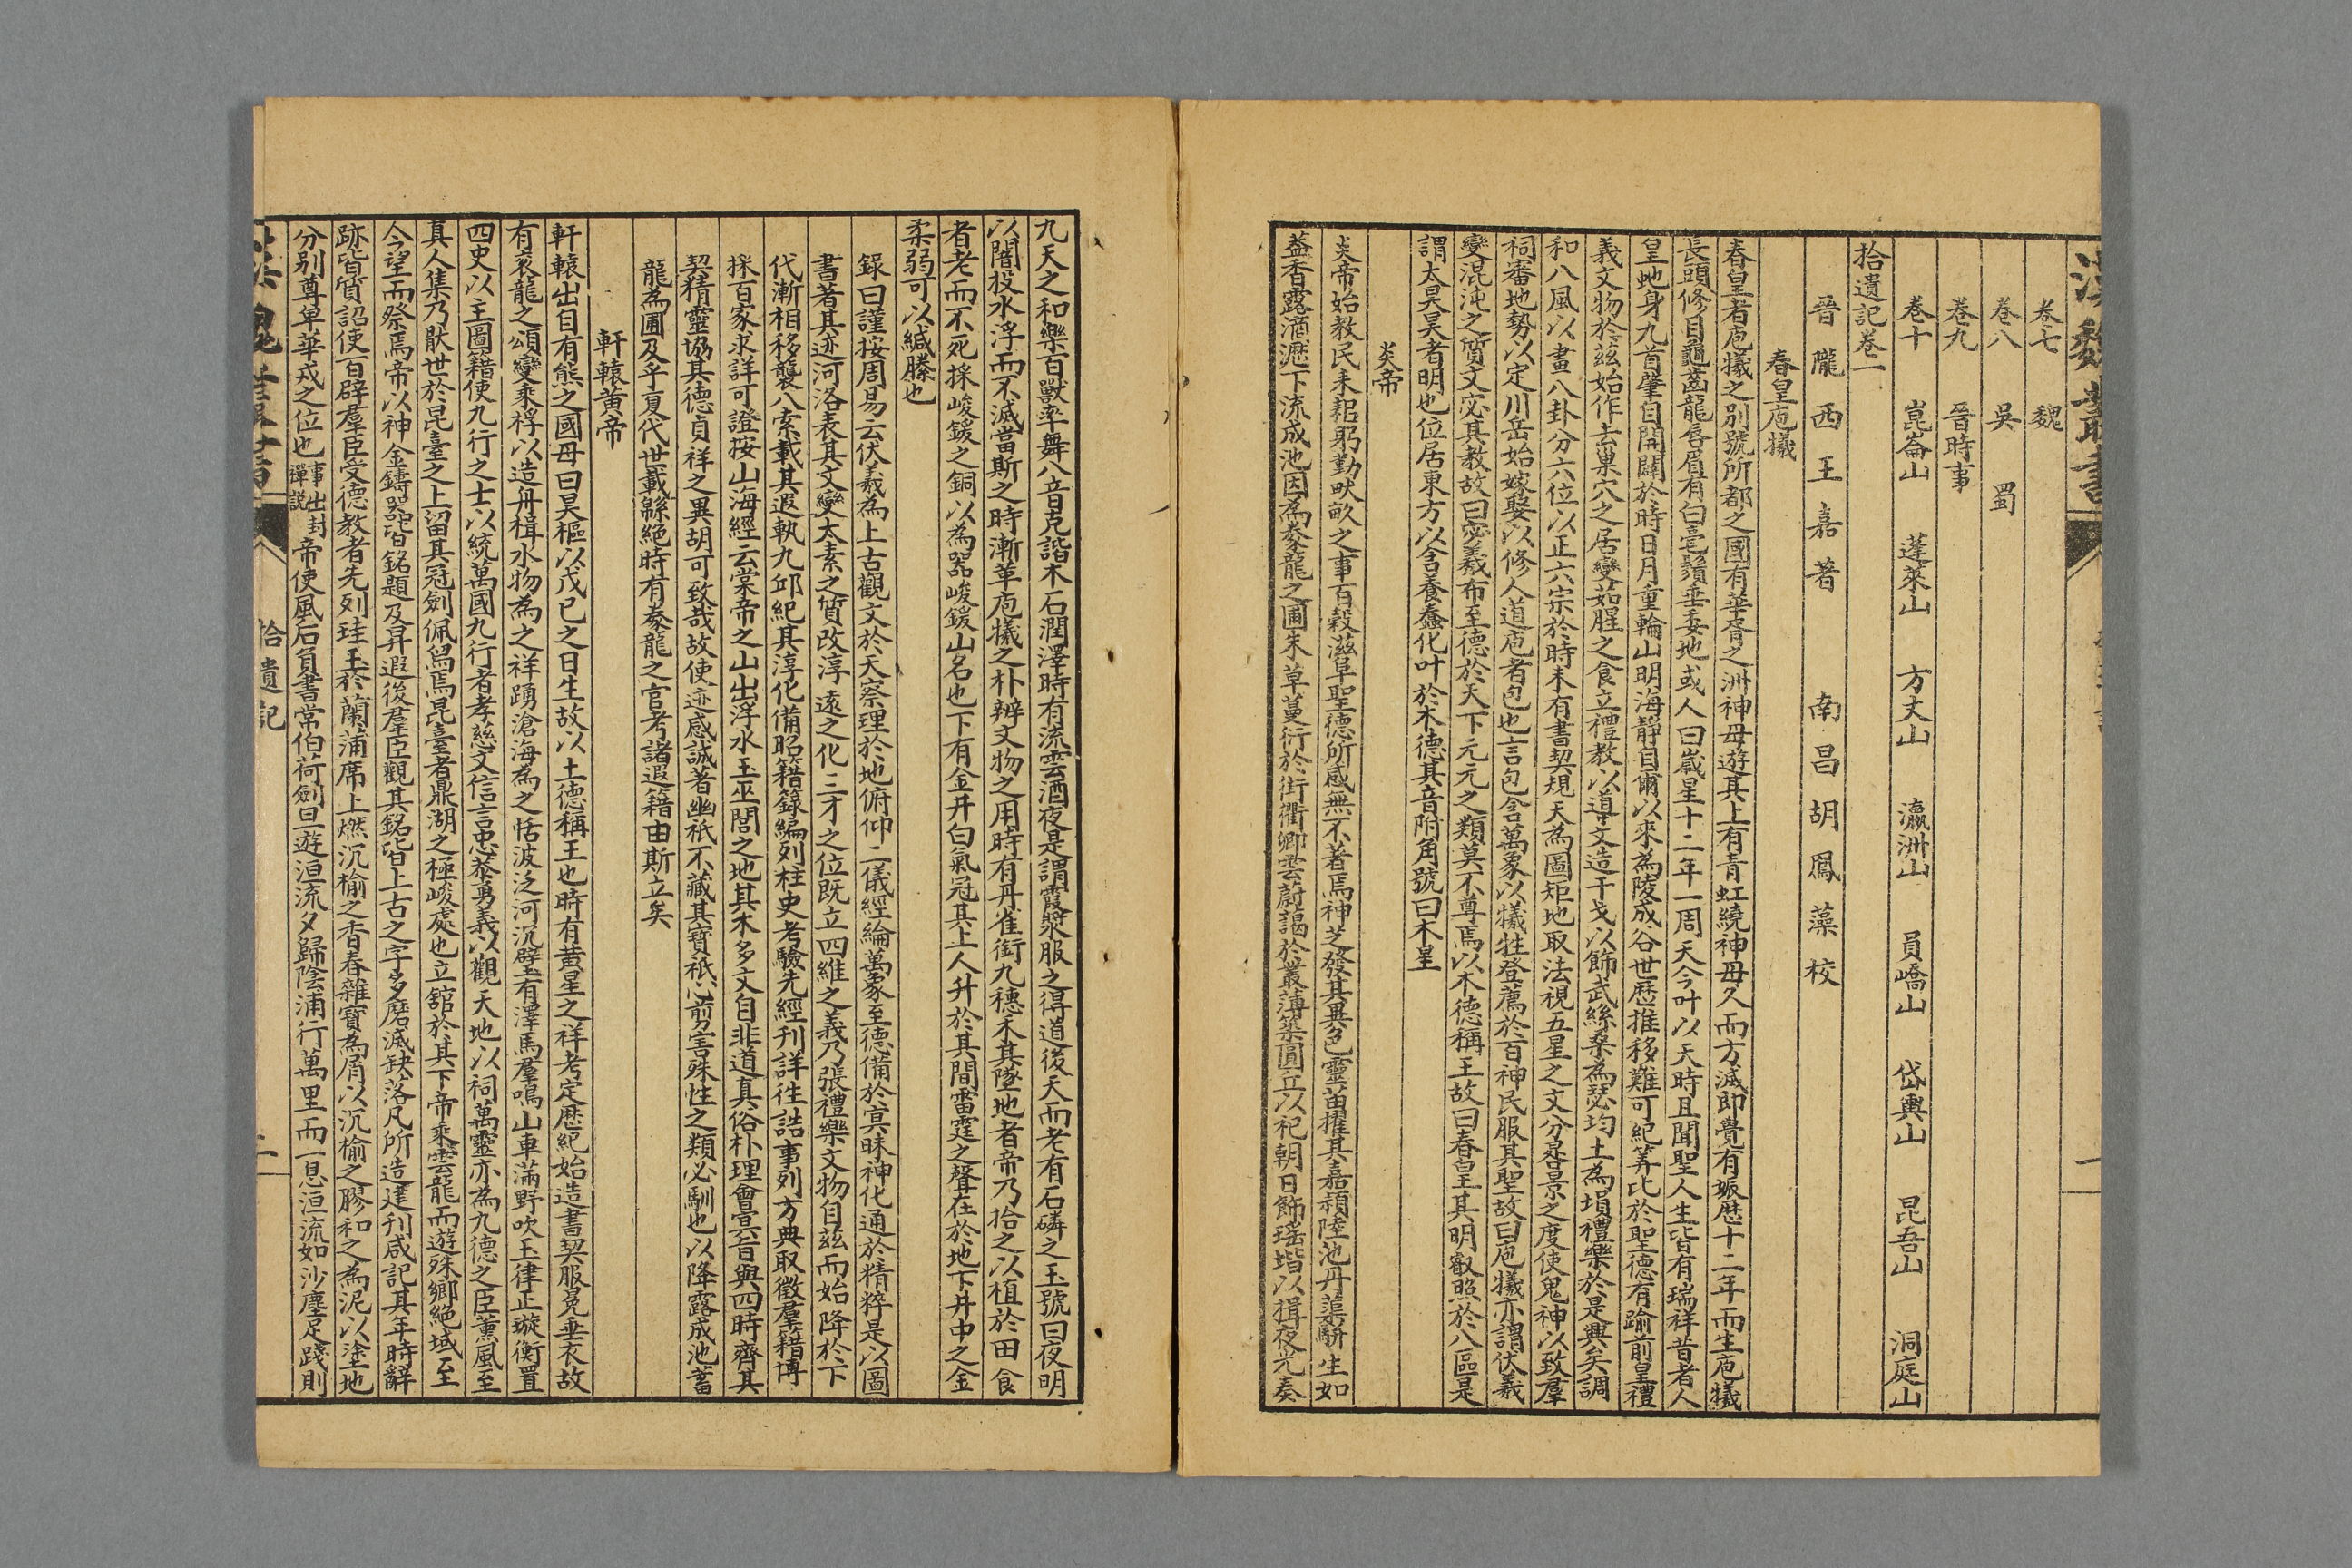 漢魏叢書
卷七 魏
卷八 吳 蜀
卷九 晉時事
卷十 崑崙山 蓬萊山 方丈山 瀛洲山 員嶠山 岱輿山 昆吾山 洞庭山
拾遺記卷一
晉隴西王嘉著 南昌胡鳳藻校
春皇庖犧
春皇者庖犧之別號所都之國有華胥之洲神母遊其上有青虹繞神母久而方滅即覺有娠歷十二年而生庖犧
長頭修目龜齒龍唇眉有白毫鬚垂委地或人曰歲星十二年一周天今叶以天時且聞聖人生皆有瑞祥昔者人
皇蛇身九首肇自開闢於時日月重輪山明海靜自爾以來為陵成谷世歷推移難可紀算比於聖德有踰前皇禮
義文物於茲始作去巢穴之居變茹腥之食立禮教以導文造干戈以飾武絲桑為瑟均土為塤禮樂於是興矣調
和八風以畫八卦分六位以正六宗於時未有書契規天為圖矩地取法視五星之文分晷景之度使鬼神以致羣
祠審地勢以定川岳始嫁娶以修人道庖者包也言包含萬象以犧牲登薦於百神民服其聖故曰庖犧亦謂伏羲
變混沌之質文宓其教故曰宓羲布至德於天下元元之類莫不尊焉以木德稱王故曰春皇其明叡照於八區是
謂太昊昊者明也位居東方以含養蠢化叶於木德其音附角號曰木皇
炎帝
炎帝始教民耒耜躬勤畎畝之事百穀滋阜聖德所感無不著焉神芝發其異色靈苗擢其嘉穎陸池丹蕖駢生如
蓋香露滴瀝下流成池因為豢龍之圃朱草蔓衍於街衢卿雲蔚藹於叢薄築圓丘以祀朝日飾瑤堦以揖夜光奏
九天之和樂百獸率舞八音克諧木石潤澤時有流雲洒夜是謂霞漿服之得道後天而老有石磷之玉號曰夜明
以闇投水浮而不滅當斯之時漸革庖犧之朴辨文物之用時有丹雀銜九穗禾其墜地者帝乃拾之以植於田食
者老而不死採峻鍰之銅以為器峻鍰山名也下有金井白氣冠其上人升於其間雷霆之聲在於地下井中之金
柔弱可以緘縢也
錄曰謹按周易云伏羲為上古觀文於天察理於地俯仰二儀經綸萬象至德備於冥昧神化通於精粹是以圖
書著其迹河洛表其文變太素之質改淳遠之化三才之位既立四維之義乃張禮樂文物自茲而始降於下
代漸相移襲八索載其遐軌九邱紀其淳化備昭籍籙編列柱史考驗先經刊詳往誥事列方典取徵羣籍博
採百家求詳可證按山海經云棠帝之山出浮水玉巫閭之地其木多文自非道真俗朴理會冥旨與四時齊其
契精靈協其德貞祥之異胡可致哉故使迹感誠著幽祇不藏其寶祇心剪害殊性之類必馴也以降露成池蓄
龍為圃及乎夏代世載緜絕時有豢龍之官考諸遐籍由斯立矣
軒轅黃帝
軒轅出自有熊之國母曰昊樞以戊己之日生故以土德稱王也時有黃星之祥考定歷紀始造書契服冕垂衣故
有袞龍之頌變乘桴以造舟楫水物為之祥踴滄海為之恬波泛河沉璧有澤馬羣鳴山車滿野吹玉律正璇衡置
四史以主圖籍使九行之士以統萬國九行者孝慈文信言忠恭勇義以觀天地以祠萬靈亦為九德之臣薰風至
真人集乃厭世於昆臺之上留其冠劍佩舄焉昆臺者鼎湖之極峻處也立舘於其下帝乘雲龍而遊殊鄉絕域至
今望而祭焉帝以神金鑄器皆銘題及昇遐後羣臣觀其銘皆上古之字多磨滅缺落凡所造建刊咸記其年時辭
跡皆質詔使百辟羣臣受德教者先列珪玉於蘭蒲席上燃沉榆之香舂雜寶為屑以沉榆之膠和之為泥以塗地
分別尊卑華戎之位也事出封禪說帝使風后負書常伯荷劍旦遊洹流夕歸陰浦行萬里而一息洹流如沙塵足踐則
漢魏叢書 拾遺記 二